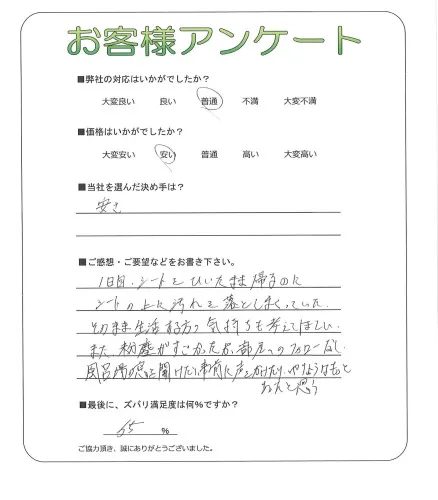 お客様アンケート
■弊社の対応はいかがでしたか？
大変良い 良い 普通 不満 大変不満
■価格はいかがでしたか？
大変安い 安い 普通 高い 大変高い
■当社を選んだ決め手は？
安さ
■ご感想・ご要望などをお書き下さい。
1日目、シートをひいたまま帰るのに
シートの上に汚れを落としまくっていた。
そのまま生活する方の気持ちも考えてほしい。
また粉塵がすごかった為、部屋へのフォローなし。
風呂場の窓を開けたり事前に声をかけたり、やりようはもっと
あると思う
■最後に、ズバリ満足度は何％ですか？
65 ％
ご協力頂き、誠にありがとうございました。